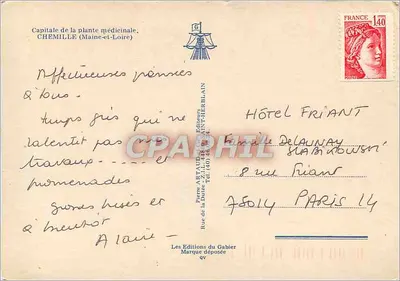 Capitale de la plante médicinale,
CHEMILLE (Maine-et-Loire)
Affectueuses pensées
à tous.
Temps gris qui ne
ralentit pas nos
travaux ..... et
promenades
Grosses bises et
à bientôt
FRANCE
1,40
HÔTEL FRIANT
Famille DELAUNAY
8 rue Friant
75014 PARIS 14
CPARHIL
Les Editions du Gabier
Marque déposée